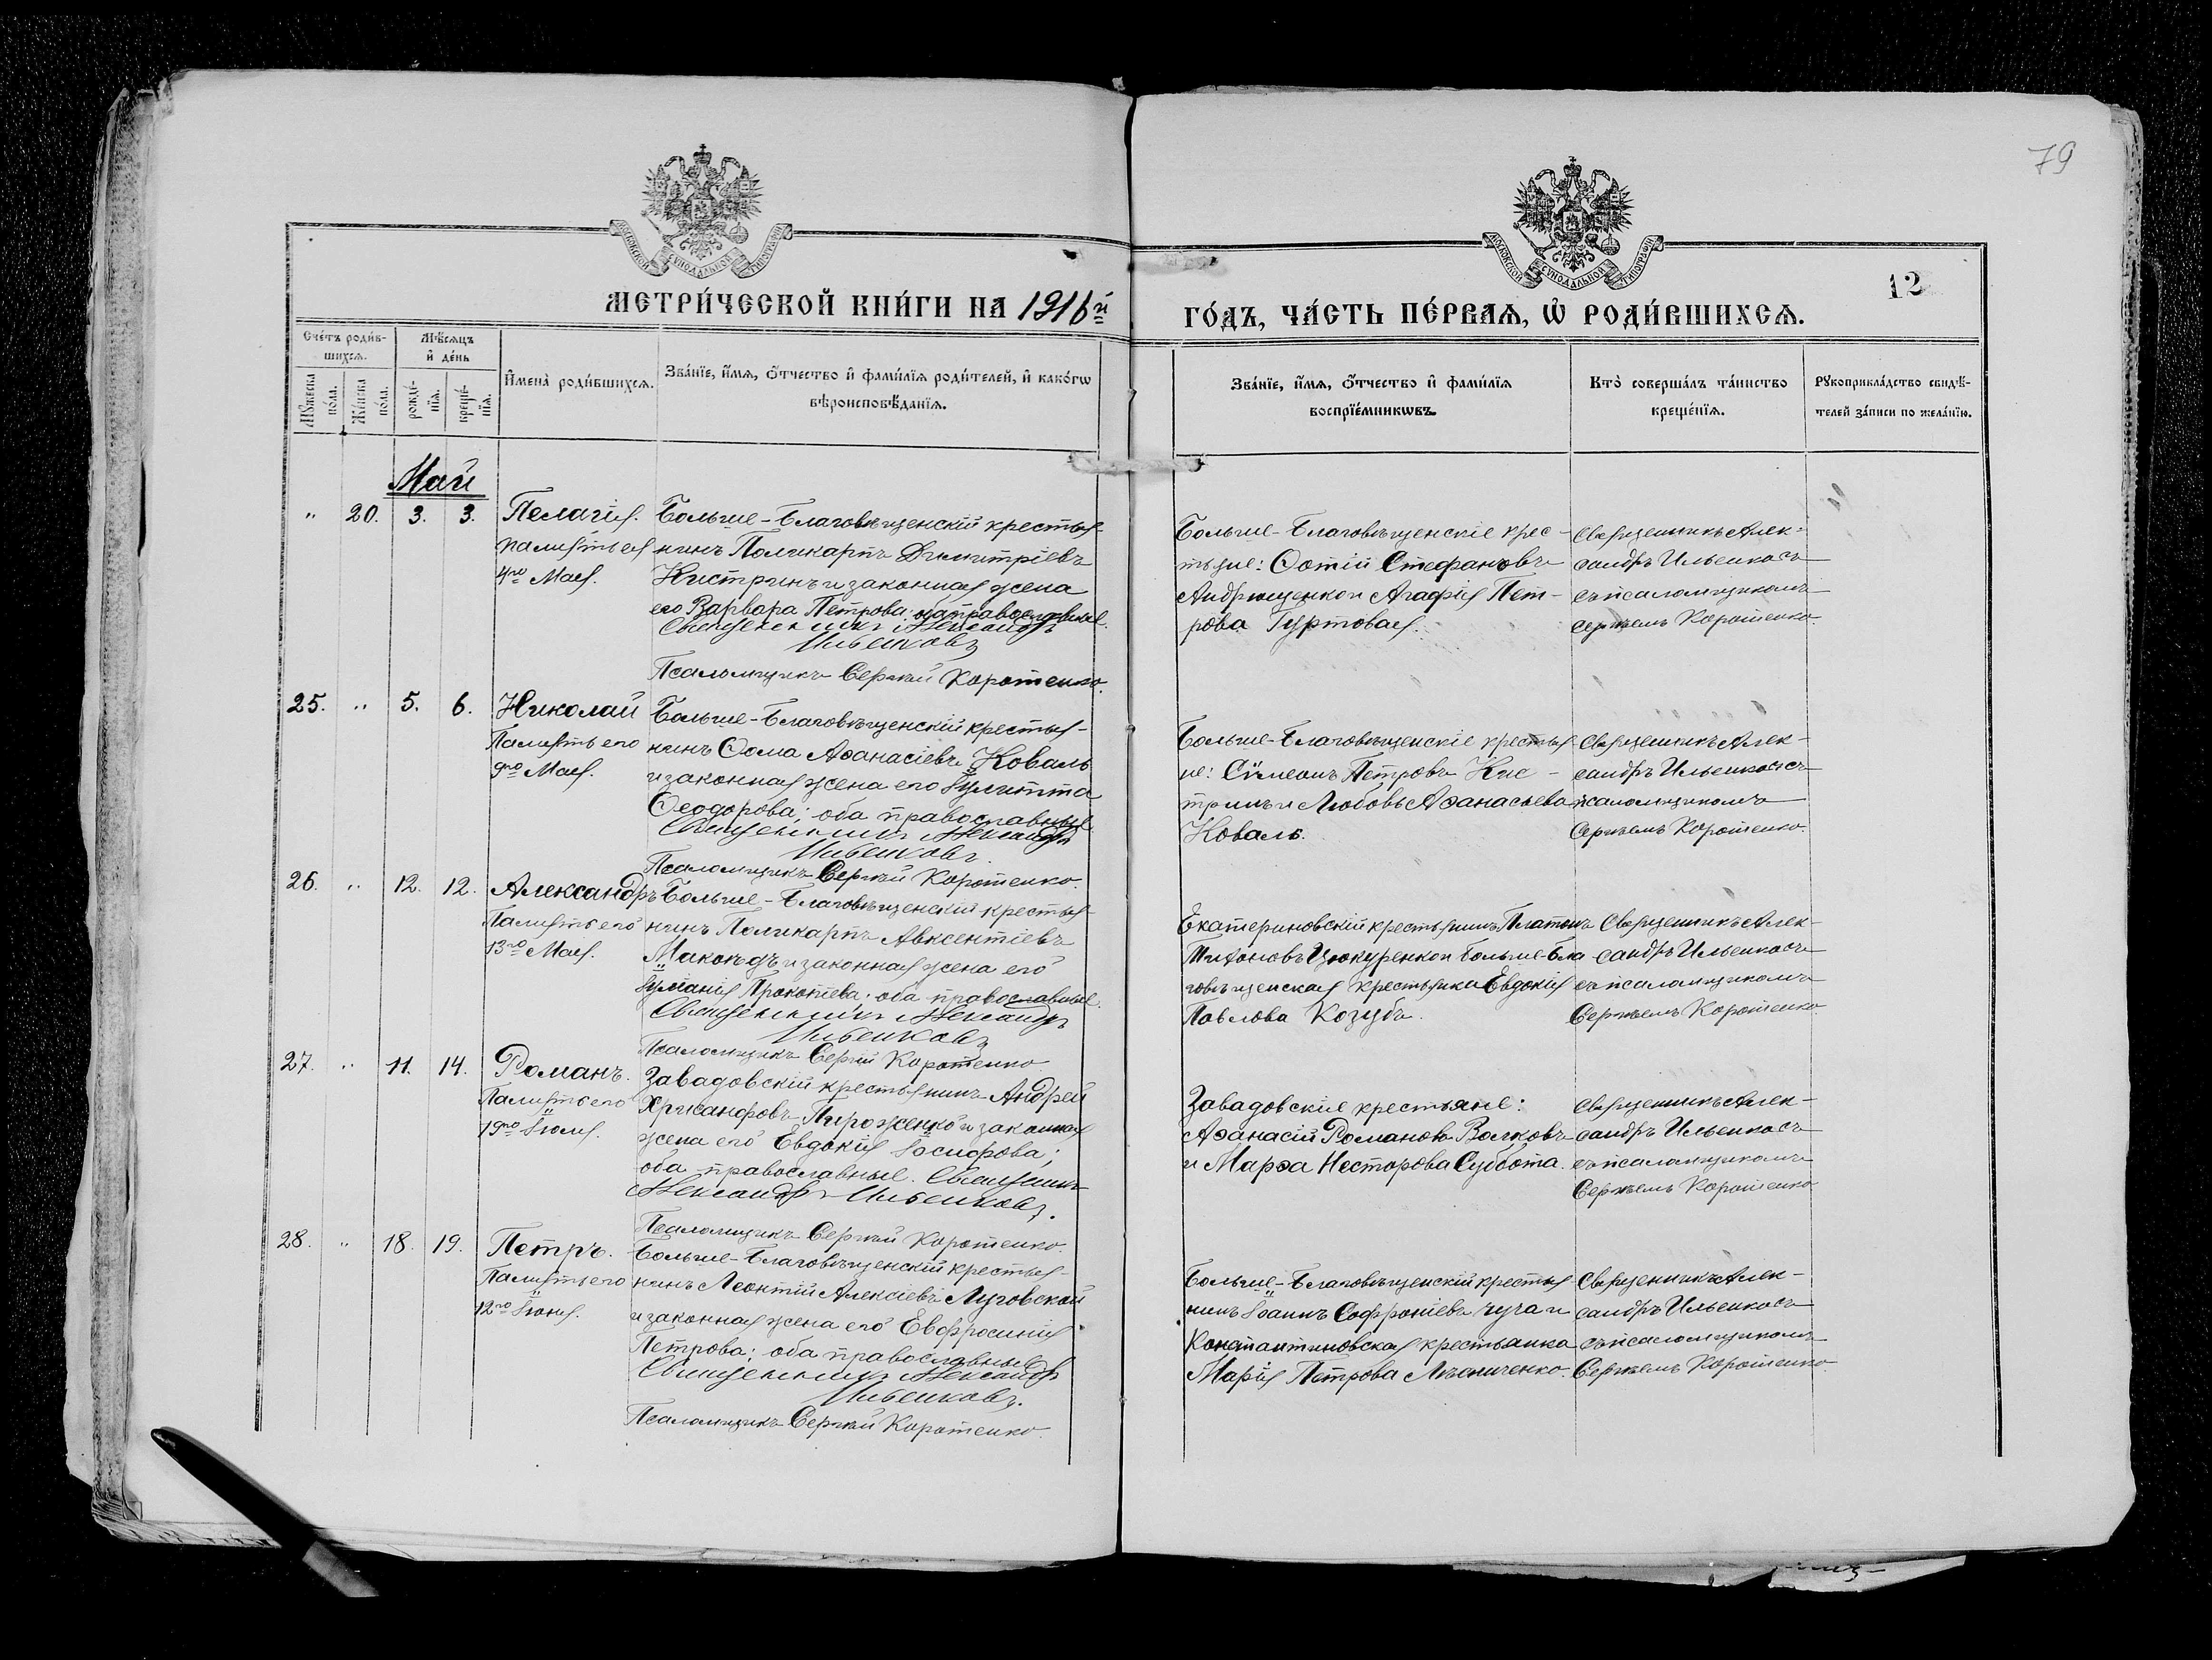 79
МОСКОВСКОЙ СѴНОДАЛЬНОЙ ТИПОГРАФІИ
МОСКОВСКОЙ СѴНОДАЛЬНОЙ ТИПОГРАФІИ
12
МЕТРИ́ЧЕСКОЙ КНИ́ГИ НА 1916й
ГО́ДЪ, ЧА́СТЬ ПЕ́РВАЯ, Ѡ҆ РОДИ́ВШИХСЯ.
Сче́тъ роди́в-
шихся.
Мѣ́сяцъ
и҆ де́нь
Мꙋ́жеска
по́ла.
Же́нска
по́ла.
рожде́-
нїя.
креще́-
нїя.
И҆мена̀ роди́вшихся.
Зва́нїе, и҆́мя, ѻ҆́тчество и҆ фами́лїя роди́телей, и҆ како́гѡ
вѣроисповѣ́данїя.
Зва́нїе, и҆́мя, ѻ҆́тчество и҆ фами́лїя
воспрїе́мникѡвъ.
Кто̀ соверша́лъ та́инство
креще́нїя.
Рꙋкоприкла́дство свидѣ́-
телей за́писи по жела́нїю.
Май
" 20. 3. 3. Пелагія.
память ея
4го Мая.
Больше-Благовѣщенскій крестья-
нинъ Поликарпъ Димитріевъ
Кистринъ и законная жена
его Варвара Петрова; оба православные.
Священникъ Александръ
Ильенковъ
Псаломщикъ Сергѣй Коротенко.
Больше-Благовѣщенскіе крес-
тьяне: Фотій Стефановъ
Андрющенко и Агафія Пет-
рова Гуртовая.
Священникъ Алек-
сандръ Ильенковъ
съ псаломщикомъ
Сергѣемъ Коротенко.
25. " 5. 6. Николай
Память его
9го Мая.
Больше-Благовѣщенскій крестья-
нинъ Ѳома Аѳанасіевъ Коваль
и законная жена его Іулитта
Ѳеодорова; оба православные.
Священникъ Александръ
Ильенковъ.
Псаломщикъ Сергѣй Коротенко.
Больше-Благовѣщенскіе крестья-
не: Сѵмеонъ Петровъ Кис-
тринъ и Любовь Аѳанасьева
Коваль.
Священникъ Алек-
сандръ Ильенковъ съ
псаломщикомъ
Сергѣемъ Коротенко.
26. " 12. 12. Александръ
Память его
13го Мая.
Больше-Благовѣщенскій крестья-
нинъ Поликарпъ Авксентіевъ
Макоѣдъ и законная жена его
Іуліанія Прокопіева; оба православные.
Священникъ Александръ
Ильенковъ
Псаломщикъ Сергій Коротенко.
Екатериновскій крестьянинъ Платонъ
Тихоновъ Цюкуренко и Больше-Бла
говѣщенская крестьянка Евдокія
Павлова Козубъ.
Священникъ Алек-
сандръ Ильенковъ
съ псаломщикомъ
Сергѣемъ Коротенко
27. " 11. 14. Романъ.
Память его
19го Іюля.
Завадовскій крестьянинъ Андрей
Хрисанфовъ Пироженко и законная
жена его Евдокія Іосифова;
оба православные. Священникъ
Александръ Ильенковъ.
Псаломщикъ Сергѣй Коротенко.
Завадовскіе крестьяне:
Аѳанасій Романовъ Волковъ
и Марѳа Несторова Суббота.
Священникъ Алек-
сандръ Ильенковъ
съ псаломщикомъ
Сергѣемъ Коротенко
28. " 18. 19. Петръ.
Память его
12го Іюня.
Больше-Благовѣщенскій крестья-
нинъ Леонтій Алексіевъ Луговской
и законная жена его Евфросинія
Петрова; оба православные
Священникъ Александръ
Ильенковъ.
Псаломщикъ Сергѣй Коротенко.
Больше-Благовѣщенскій крестья-
нинъ Іоаннъ Софроніевъ Чуча и
Константиновская крестьянка
Марія Петрова
Священникъ Алек-
сандръ Ильенковъ
съ псаломщикомъ
Сергѣемъ Коротенко.